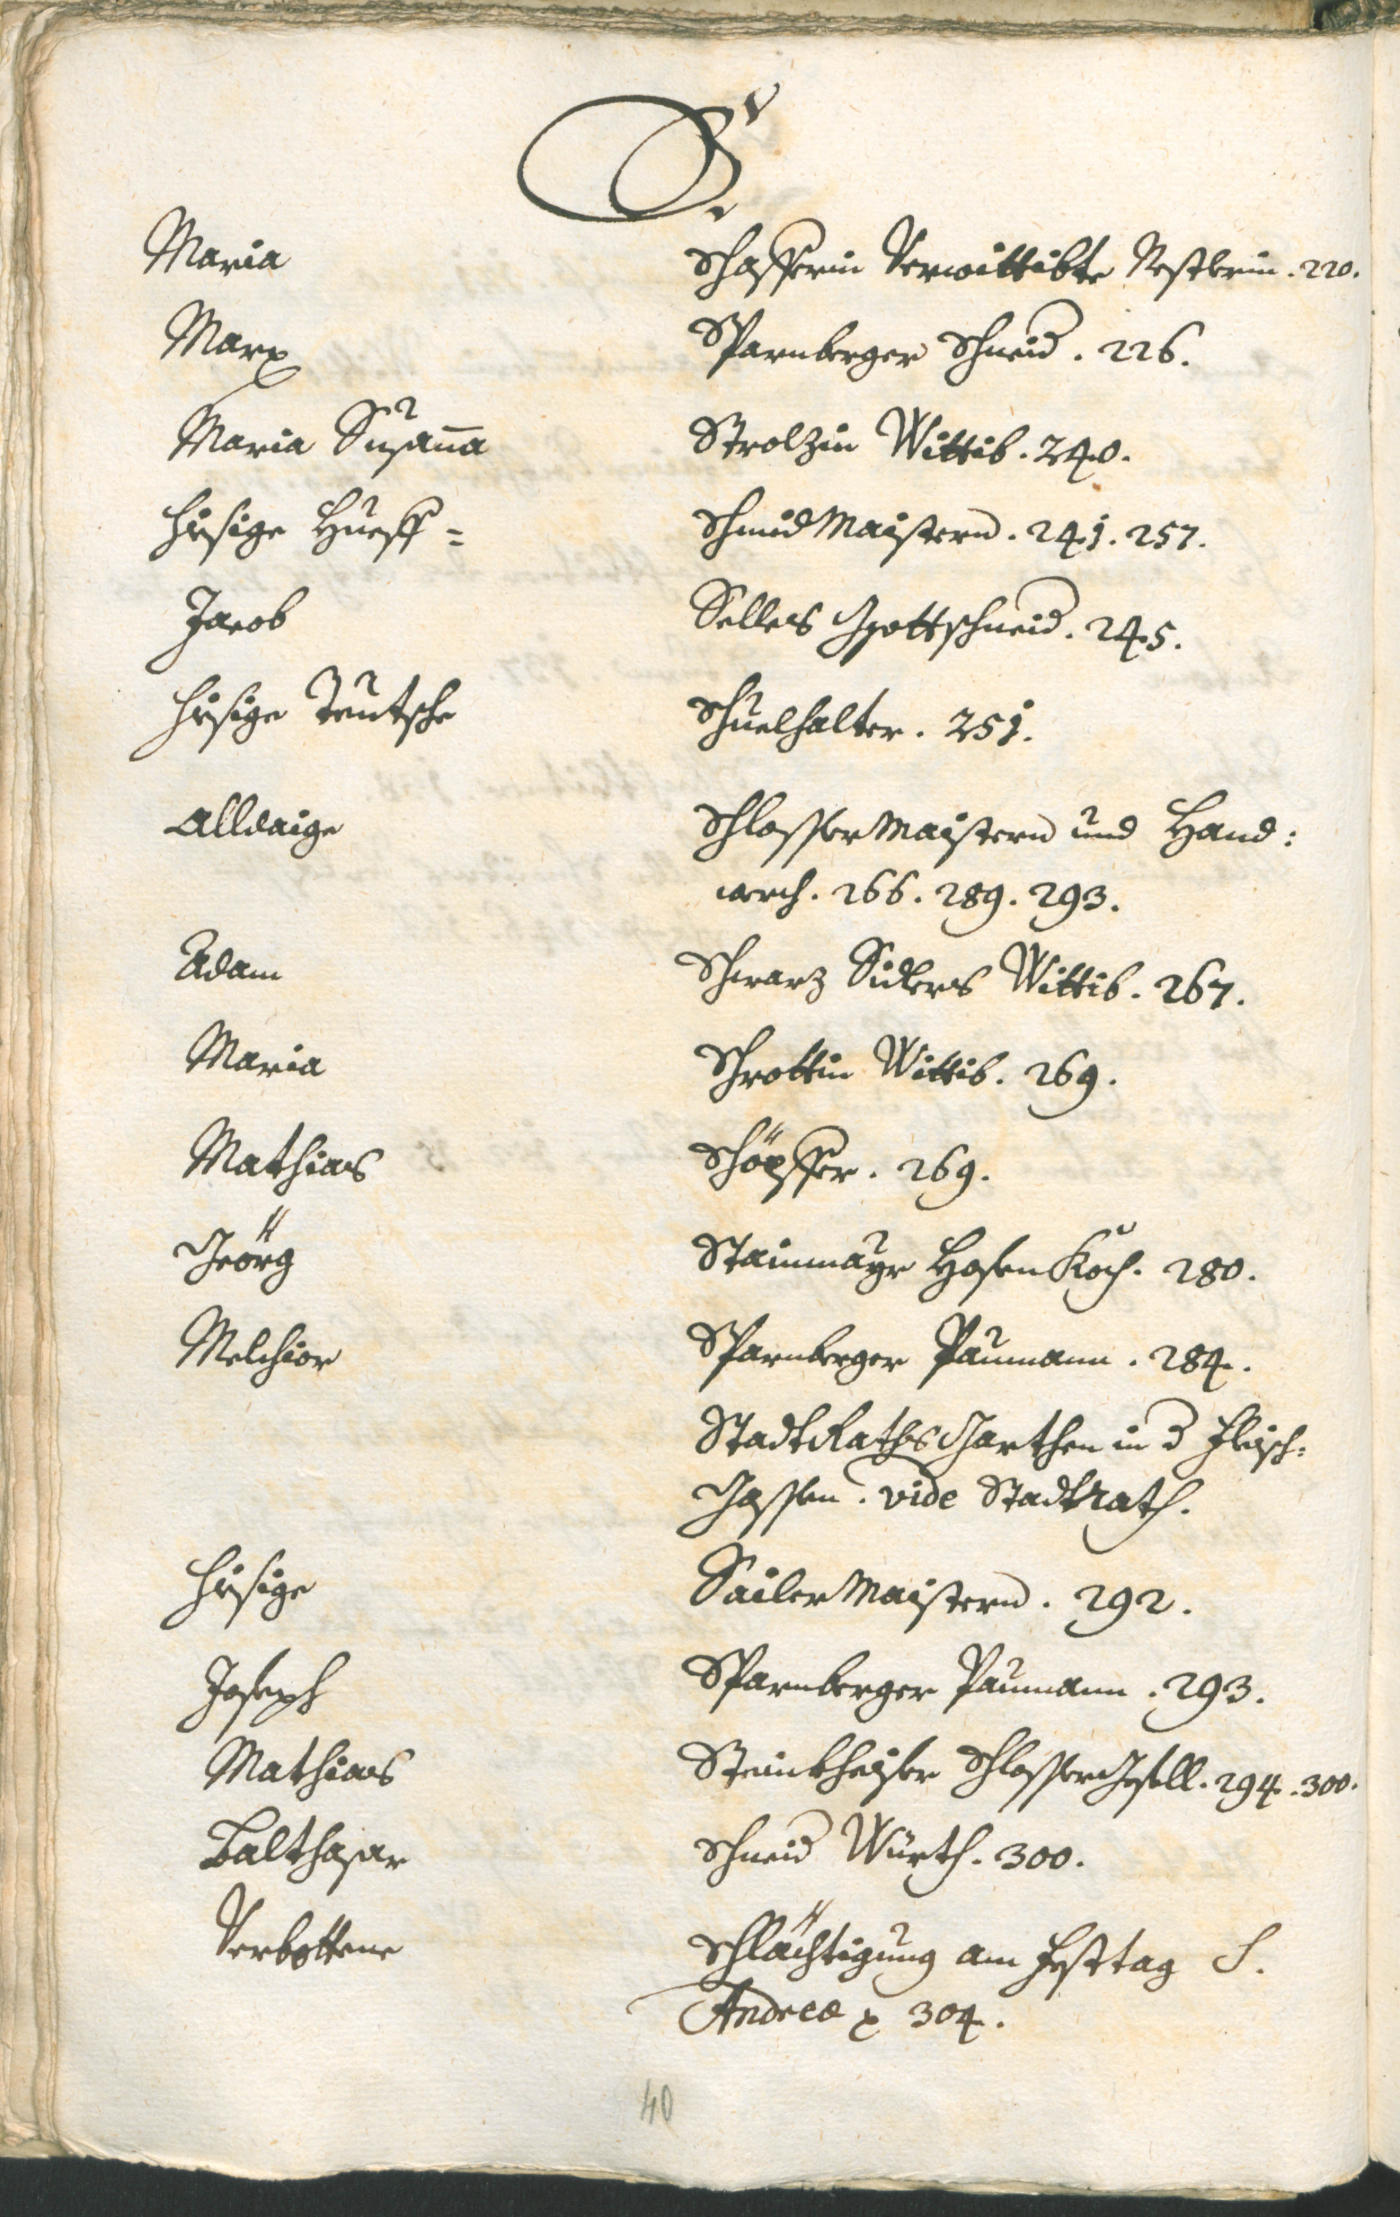 S.
Maria Schafferin Verwittibte Nestlerin. 220.
Marx Sparnberger Schneid. 226.
Maria Susaña Strolzin Wittib. 240.
Hiesige Hueff= Schmid Maistern. 241. 257.
Jacob Sellers Gottschneid. 245.
Hiesige Teutsche Schuelhalter. 251.
Alldaige Schlosser Maistern und Hand:
werch. 266. 289. 293.
Adam Schwarz Sidlers Wittib. 267.
Maria Schrottin Wittib. 269.
Mathias Schöpffer. 269.
Geörg Stainmayr Hafen Koch. 280.
Melchior Sparnberger Paumann. 284.
Stadt Raths Garthen in d Fleisch:
Gassen. vide Stadt Rath.
Hiesige Sailer Maistern. 292.
Joseph Sparnberger Paumann. 293.
Mathias Schlosser Gesell. 294. 300.
Balthasar Schneid Würth. 300.
Verbottene Schlächtigung am Festtag S.
Andreæ 304.
40